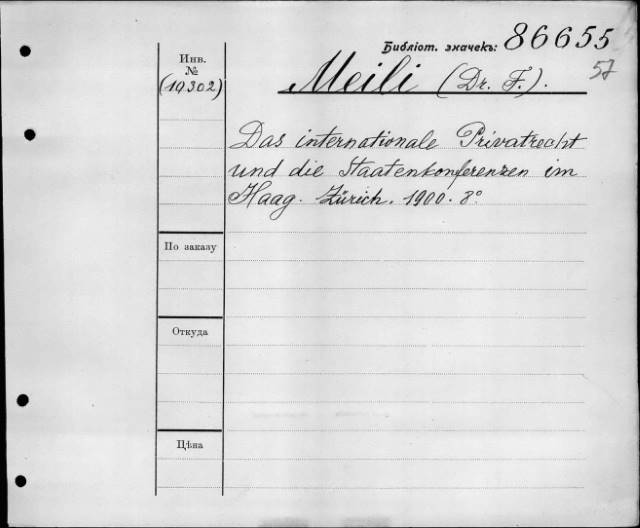 Библіот. значекъ: 86655
57
Инв.
№
(19302)
Meili (Dr. F.).
Das internationale Privatrecht
und die Staatenkonferenzen im
Haag. Zürich. 1900. 8°
По заказу
Откуда
Цѣна